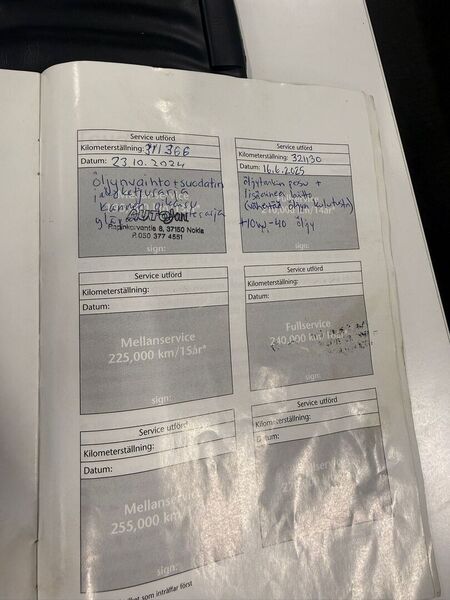 Service utförd
Kilometerställning: 311366
Datum: 23.10.2024
öljynvaihto+suodatin
jakoketjusarja
AUTOJani
Rapinkorventie 8, 37150 Nokia
P. 050 377 4551
sign:
Service utförd
Kilometerställning: 321130
Datum: 16.6.2025
öljytankin pesu +
lisäaineen laitto
(vähentää öljyn kulutusta)
+10w-40 öljy
sign:
Service utförd
Kilometerställning:
Datum:
Mellanservice
225,000 km/15år*
sign:
Service utförd
Kilometerställning:
Datum:
Fullservice
240,000 km/16år*
sign:
Service utförd
Kilometerställning:
Datum:
Mellanservice
255,000 km/
sign:
Service utförd
Kilometerställning:
Datum:
sign:
som inträffar först